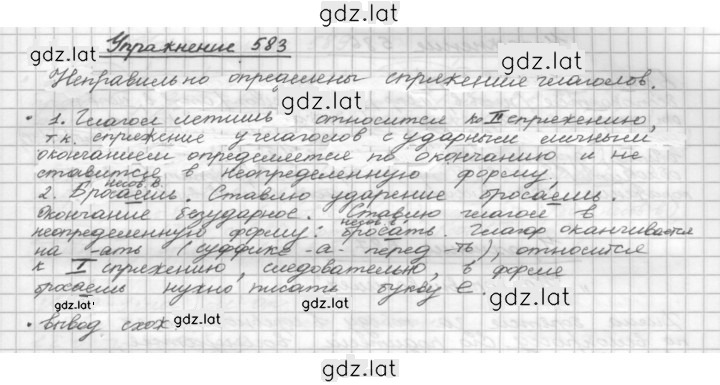 gdz.lat
Упражнение 583
gdz.lat
Неправильно определены спряжения глаголов.
gdz.lat
1. Глагол летишь относится ко II спряжению,
т.к. спряжение у глаголов с ударным личным
окончанием определяется по окончанию и не
ставится в неопределенную форму.
несов. в.
2. Бросаешь. Ставлю ударение бросаешь.
Окончание безударное. Ставлю глагол в
несов. в.
неопределенную форму: бросать. Глагол оканчивается
на -ать (суффикс -а- перед -ть), относится
к I спряжению, следовательно, в форме
бросаешь нужно писать букву е.
gdz.lat gdz.lat gdz.lat
вывод схож
gdz.lat
gdz.lat